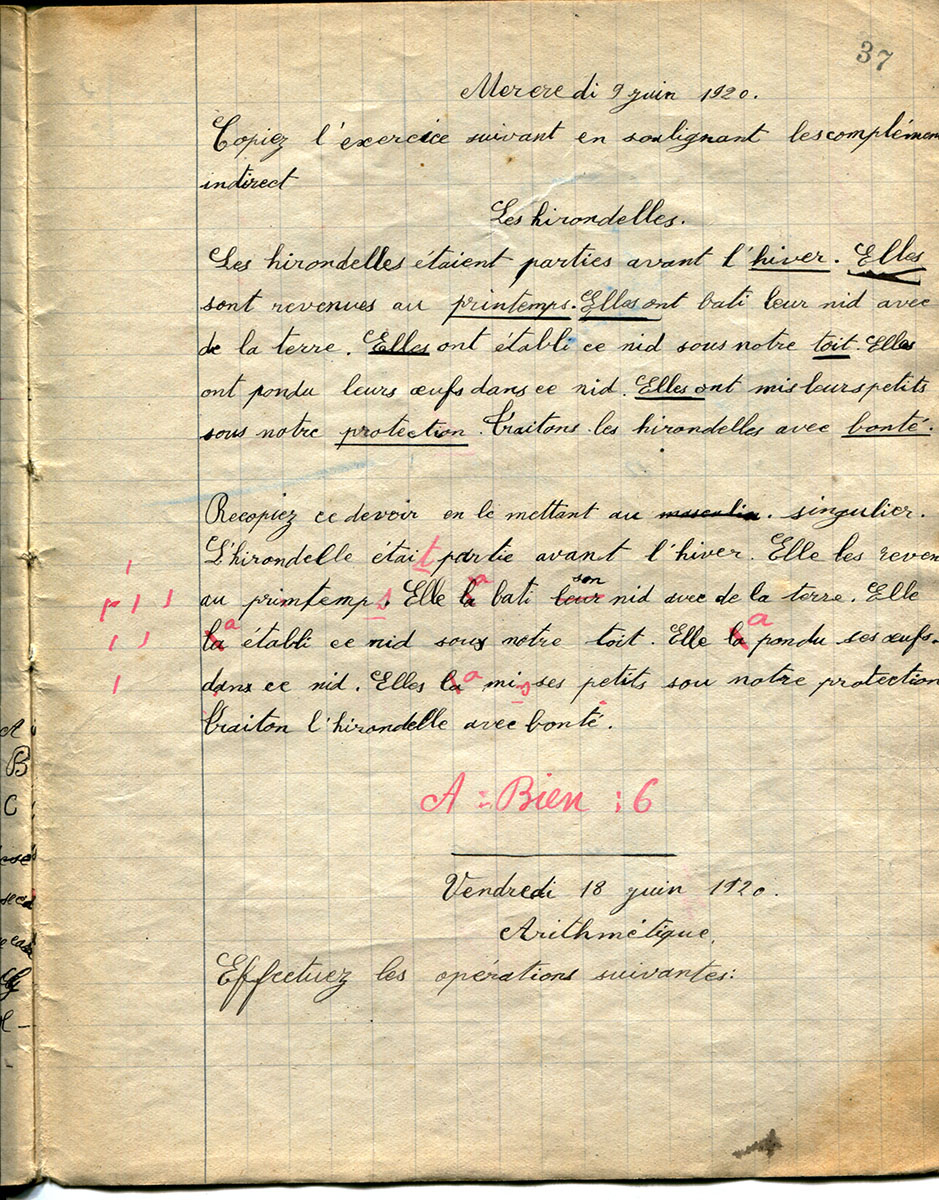 37
Mercredi 9 juin 1920.
Copiez l'exercice suivant en soulignant les complémen
indirect
Les hirondelles.
Les hirondelles étaient parties avant l'hiver. Elles
sont revenues au printemps. Elles ont bati leur nid avec
de la terre. Elles ont établi ce nid sous notre toit. Elles
ont pondu leurs œufs dans ce nid. Elles ont mis leurs petits
sous notre protection. Traitons les hirondelles avec bonté.
Recopiez ce devoir en le mettant au masculin. singulier.
L'hirondelle était partie avant l'hiver. Elle les reven
au primtemps. Elle la a bati leur son nid avec de la terre. Elle
la a établi ce nid sous notre toit. Elle la a pondu ses œufs.
dans ce nid. Elles la a mis ses petits sou notre protection
Traiton l'hirondelle avec bonté.
A : Bien : 6
Vendredi 18 juin 1920.
Arithmétique.
Effectuez les opérations suivantes:
A
B
C